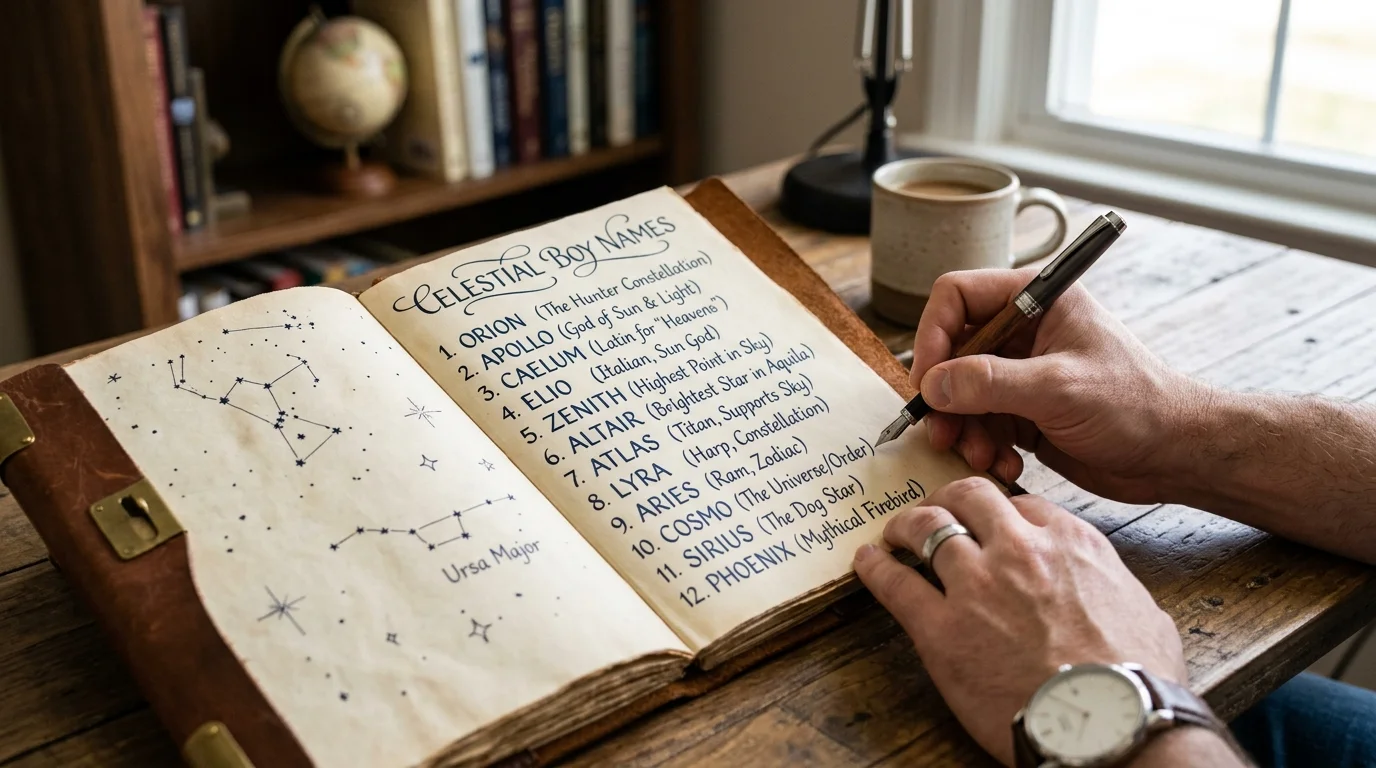 Ursa Major
CELESTIAL BOY NAMES
1. ORION (The Hunter Constellation)
2. APOLLO (God of Sun & Light)
3. CAELUM (Latin for "Heavens")
4. ELIO (Italian, Sun God)
5. ZENITH (Highest Point in Sky)
6. ALTAIR (Brightest Star in Aquila)
7. ATLAS (Titan, Supports Sky)
8. LYRA (Harp, Constellation)
9. ARIES (Ram, Zodiac)
10. COSMO (The Universe/Order)
11. SIRIUS (The Dog Star)
12. PHOENIX (Mythical Firebird)